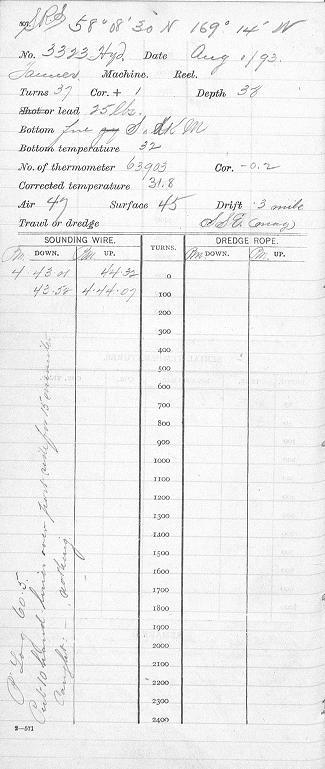 SRS 58° 08' 30 N 169° 14' W
No. 3323 Hyd. Date Aug 1/93.
Tanner Machine. Reel.
Turns 37 Cor. + 1 Depth 38
Shot or lead 25 lbs.
Bottom fne gy S. & R M
Bottom temperature 32
No. of thermometer 63903 Cor. -0.2
Corrected temperature 31.8
Air 47 Surface 45 Drift .3 mile
Trawl or dredge SSE (mag)
SOUNDING WIRE. TURNS. DREDGE ROPE.
Pm. DOWN. Pm. UP. Pm DOWN. Pm. UP.
4 43.01 44.32 0
43.58 4.44.07 100
200
300
400
500
600
700
800
900
1000
1100
1200
1300
1400
1500
1600
1700
1800
1900
2000
2100
2200
2300
2400
P Log 60.5.
Put 10 hand lines over port side for 15 minutes
Caught:- nothing -
2—571